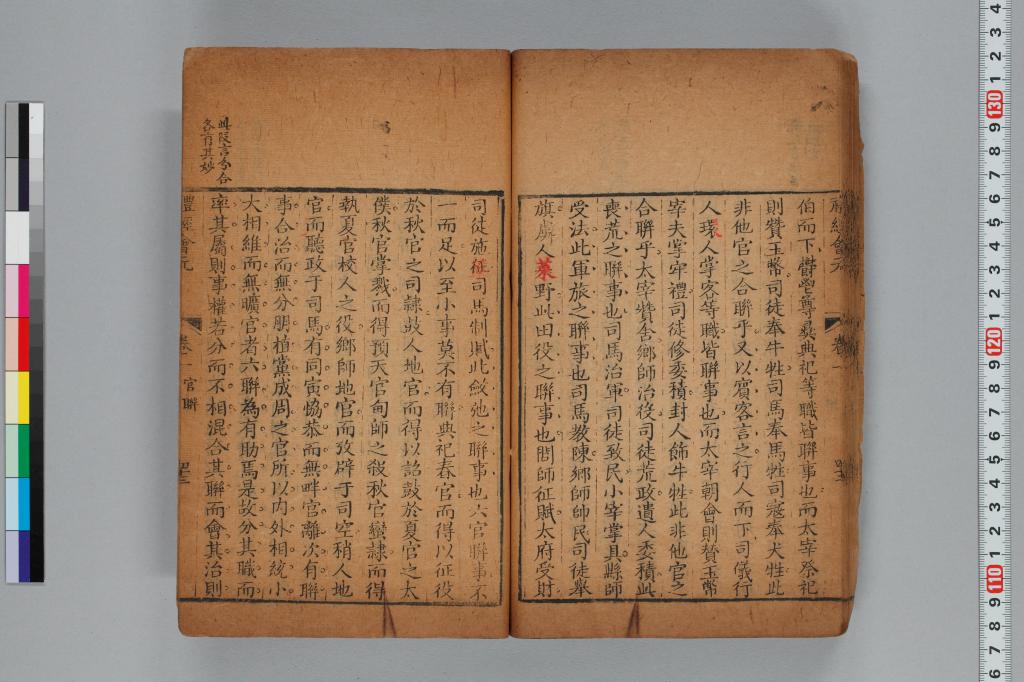 伯而下鬱鬯尊彞典祀等職皆聯事也而太宰祭祀
則贊玉幣司徒奉牛牲司馬奉馬牲司寇奉犬牲此
非他官之合聯乎又以賓客言之行人而下司儀行
人環人掌客等職皆聯事也而太宰朝會則贊玉幣
宰夫掌牢禮司徒修委積封人飾牛牲此非他官之
合聯乎太宰贊含鄉師治役司徒荒政遺人委積此
喪荒之聯事也司馬治軍司徒致民小宰掌具縣師
受法此軍旅之聯事也司馬教陳鄉師師民司徒舉
旗虞人萊野此田役之聯事也閭師征賦太府受財
司徒施征司馬制賦此斂弛之聯事也六官聯事不
一而足以至小事莫不有聯典祀春官而得以征役
於秋官之司隸鼓人地官而得以詔鼓於夏官之太
僕秋官掌戮而得預天官甸師之殺秋官蠻隸而得
執夏官校人之役鄉師地官而攷辟于司空稍人地
官而聽政于司馬有同寅恊恭而無畔官離次有聯
事合治而無分朋植黨成周之官所以内外相統小
大相維而無曠官者六聯為有助焉是故分其職而
率其屬則事權若分而不相混合其聯而會其治則
禮經會元
卷一
官聯
此段言分合
各有其妙